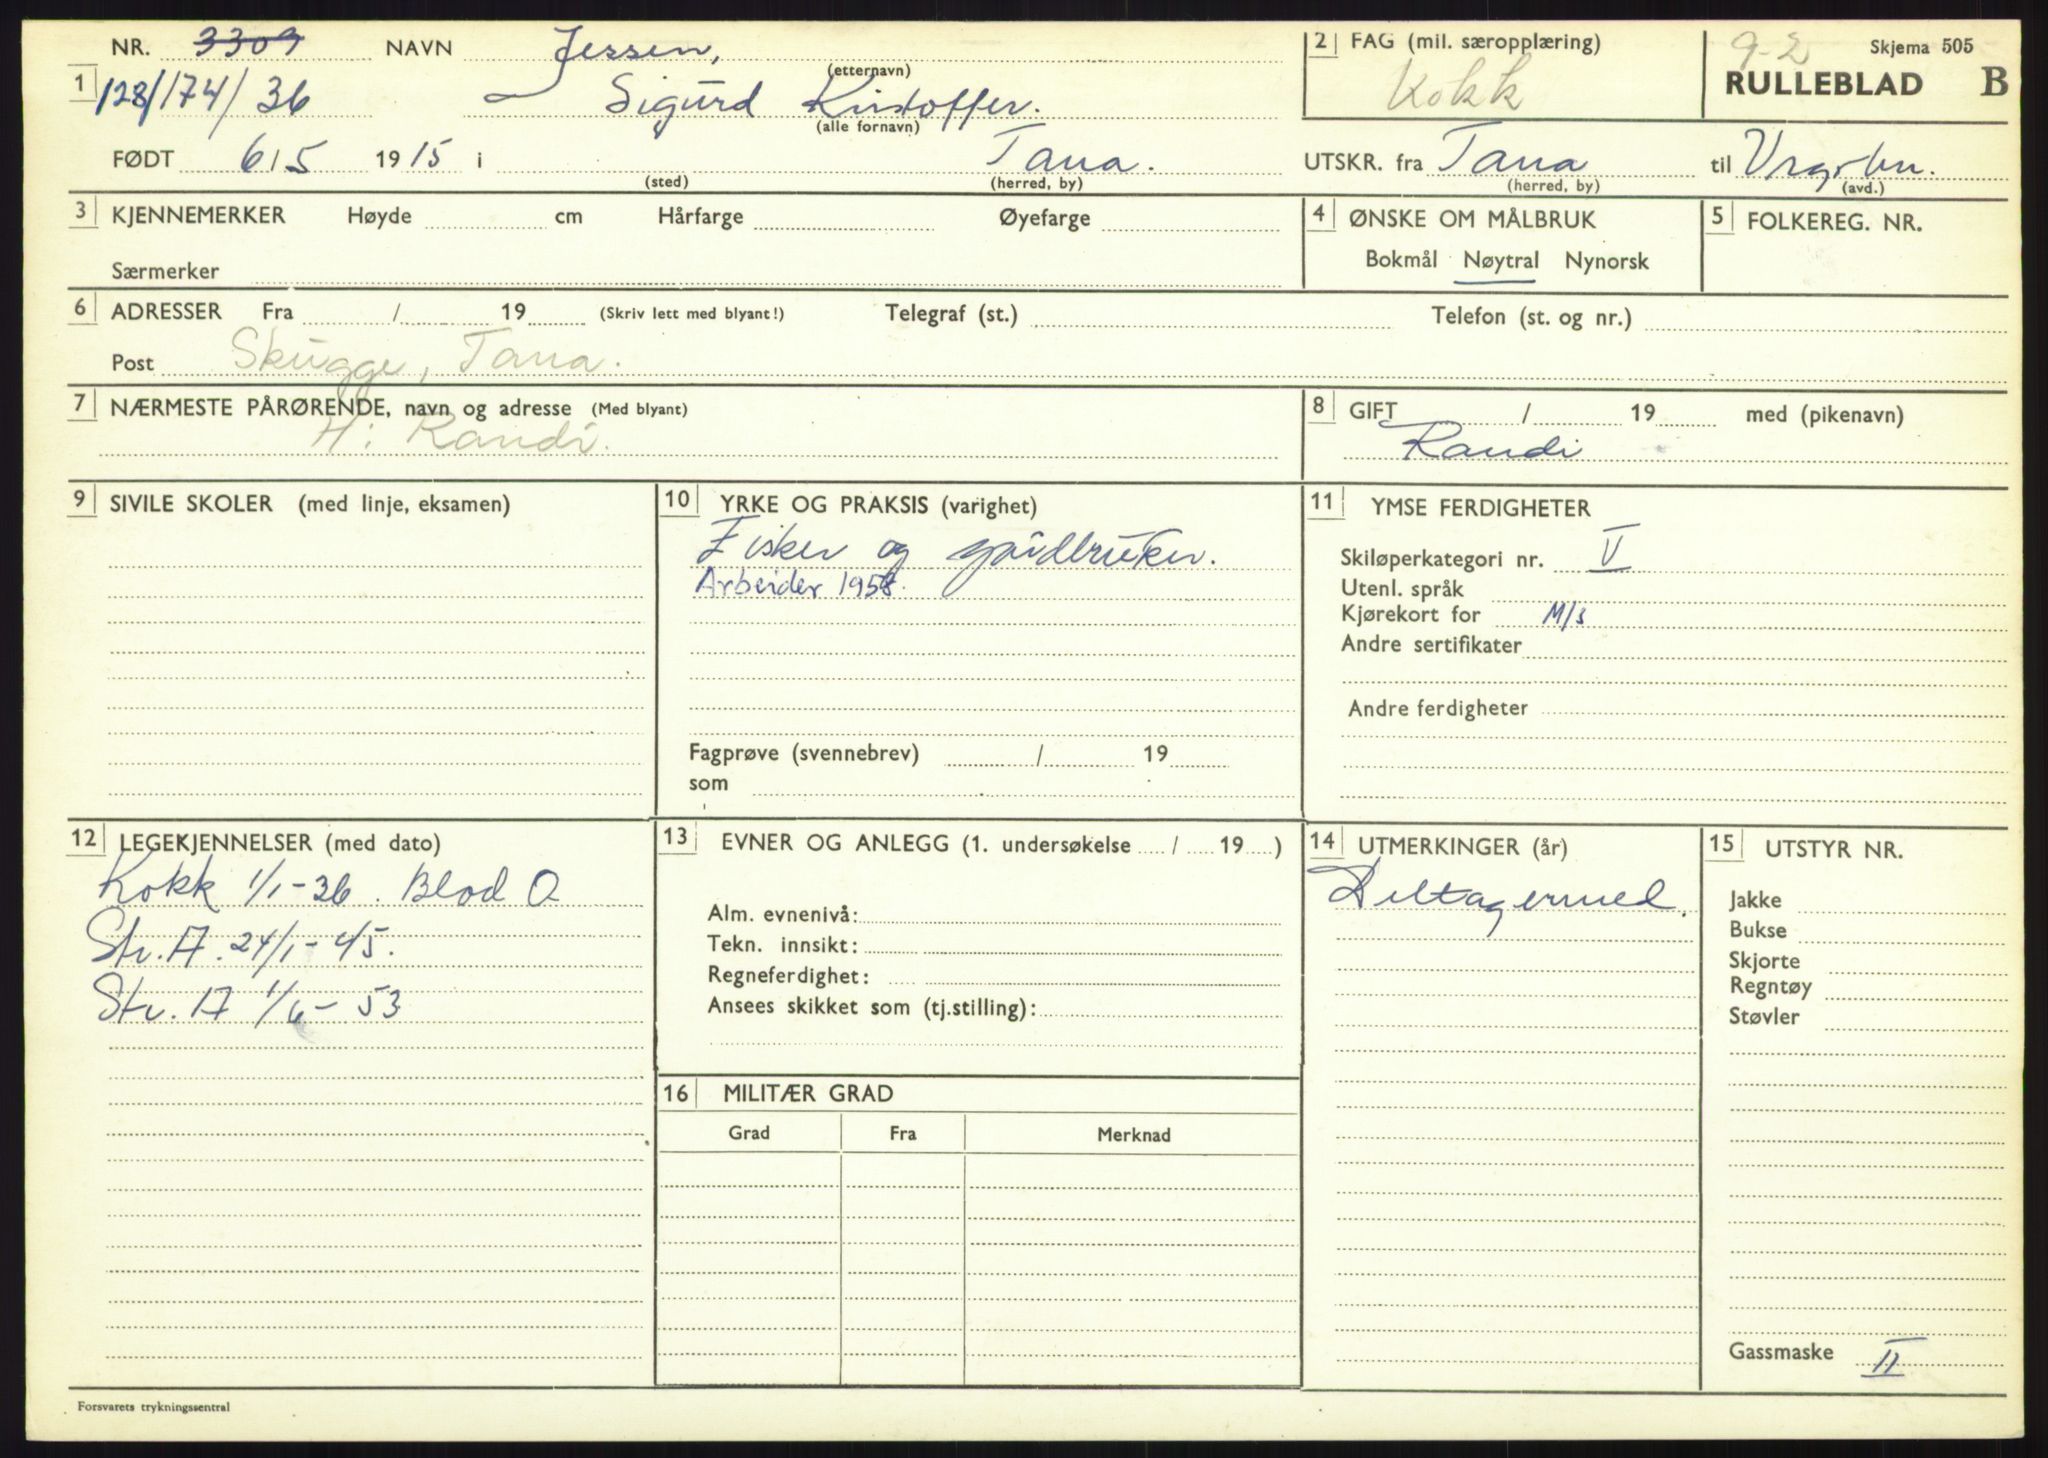 NR. 3309 NAVN Jessen,
(etternavn)
1 128/174/36 Sigurd Kristoffer.
(alle fornavn)
FØDT 6/5 1915 i Tana.
(sted) (herred, by)
2 FAG (mil. særopplæring)
Kokk
9-2 Skjema 505
RULLEBLAD B
UTSKR. fra Tana til Vrgrbn.
(herred, by) (avd.)
3 KJENNEMERKER Høyde cm Hårfarge Øyefarge
Særmerker
4 ØNSKE OM MÅLBRUK
Bokmål Nøytral Nynorsk
5 FOLKEREG. NR.
6 ADRESSER Fra / 19 (Skriv lett med blyant!) Telegraf (st.) Telefon (st. og nr.)
Post Skugge, Tana.
7 NÆRMESTE PÅRØRENDE, navn og adresse (Med blyant)
H: Randi.
8 GIFT / 19 med (pikenavn)
Randi
9 SIVILE SKOLER (med linje, eksamen)
10 YRKE OG PRAKSIS (varighet)
Fisker og gårdbruker.
Arbeider 1958.
Fagprøve (svennebrev) / 19
som
11 YMSE FERDIGHETER
Skiløperkategori nr. V
Utenl. språk
Kjørekort for M/S
Andre sertifikater
Andre ferdigheter
12 LEGEKJENNELSER (med dato)
Kokk 1/1-36. Blod O
Str. A. 24/1-45.
Str. A 1/6-53
13 EVNER OG ANLEGG (1. undersøkelse / 19 )
Alm. evnenivå:
Tekn. innsikt:
Regneferdighet:
Ansees skikket som (tj.stilling):
14 UTMERKINGER (år)
Deltagermed.
15 UTSTYR NR.
Jakke
Bukse
Skjorte
Regntøy
Støvler
Gassmaske II
16 MILITÆR GRAD
Grad Fra Merknad
Forsvarets trykningssentral